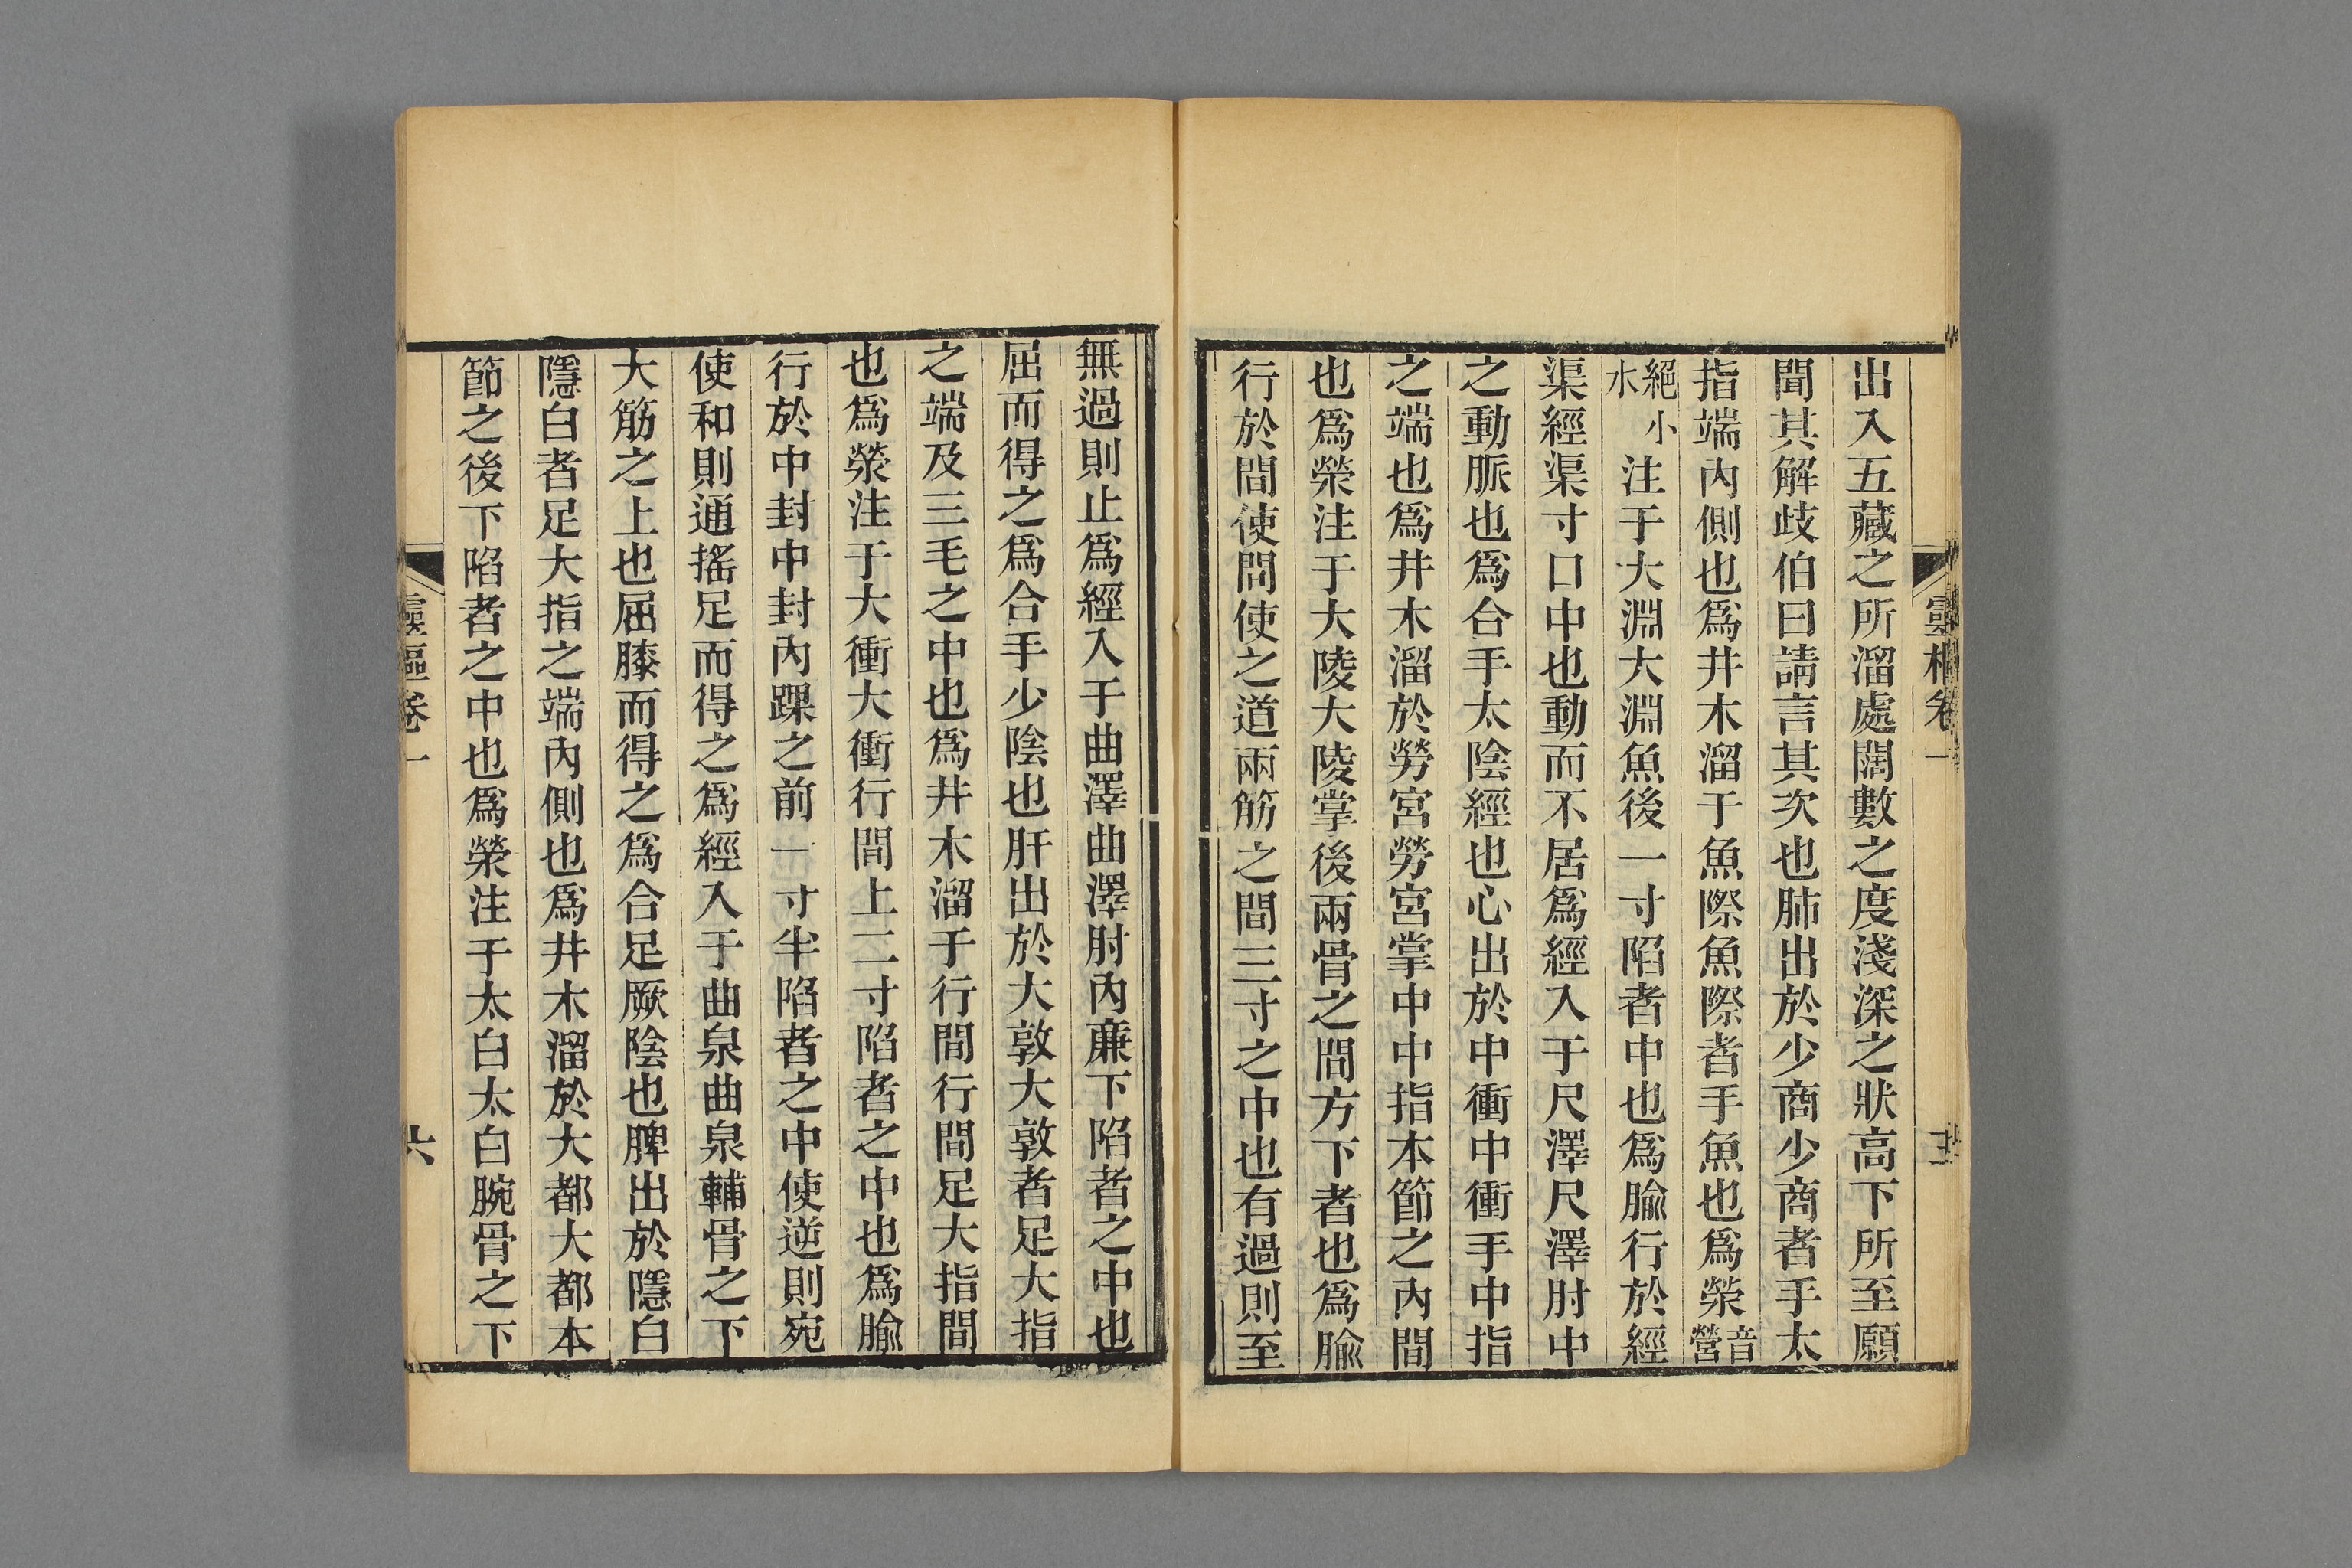 出入五藏之所溜處闊數之度淺深之狀高下所至願
聞其解歧伯曰請言其次也肺出於少商少商者手太
指端內側也爲井木溜于魚際魚際者手魚也爲滎音營
絕小水注于大淵大淵魚後一寸陷者中也爲腧行於經
渠經渠寸口中也動而不居爲經入于尺澤尺澤肘中
之動脈也爲合手太陰經也心出於中衝中衝手中指
之端也爲井木溜於勞宮勞宮掌中中指本節之內間
也爲滎注于大陵大陵掌後兩骨之間方下者也爲腧
行於間使間使之道兩筋之間三寸之中也有過則至
無過則止爲經入于曲澤曲澤肘內廉下陷者之中也
屈而得之爲合手少陰也肝出於大敦大敦者足大指
之端及三毛之中也爲井木溜于行間行間足大指間
也爲滎注于大衝大衝行間上二寸陷者之中也爲腧
行於中封中封內踝之前一寸半陷者之中使逆則宛
使和則通搖足而得之爲經入于曲泉曲泉輔骨之下
大筋之上也屈膝而得之爲合足厥陰也脾出於隱白
隱白者足大指之端內側也爲井木溜於大都大都本
節之後下陷者之中也爲滎注于太白太白腕骨之下
靈樞卷一
六